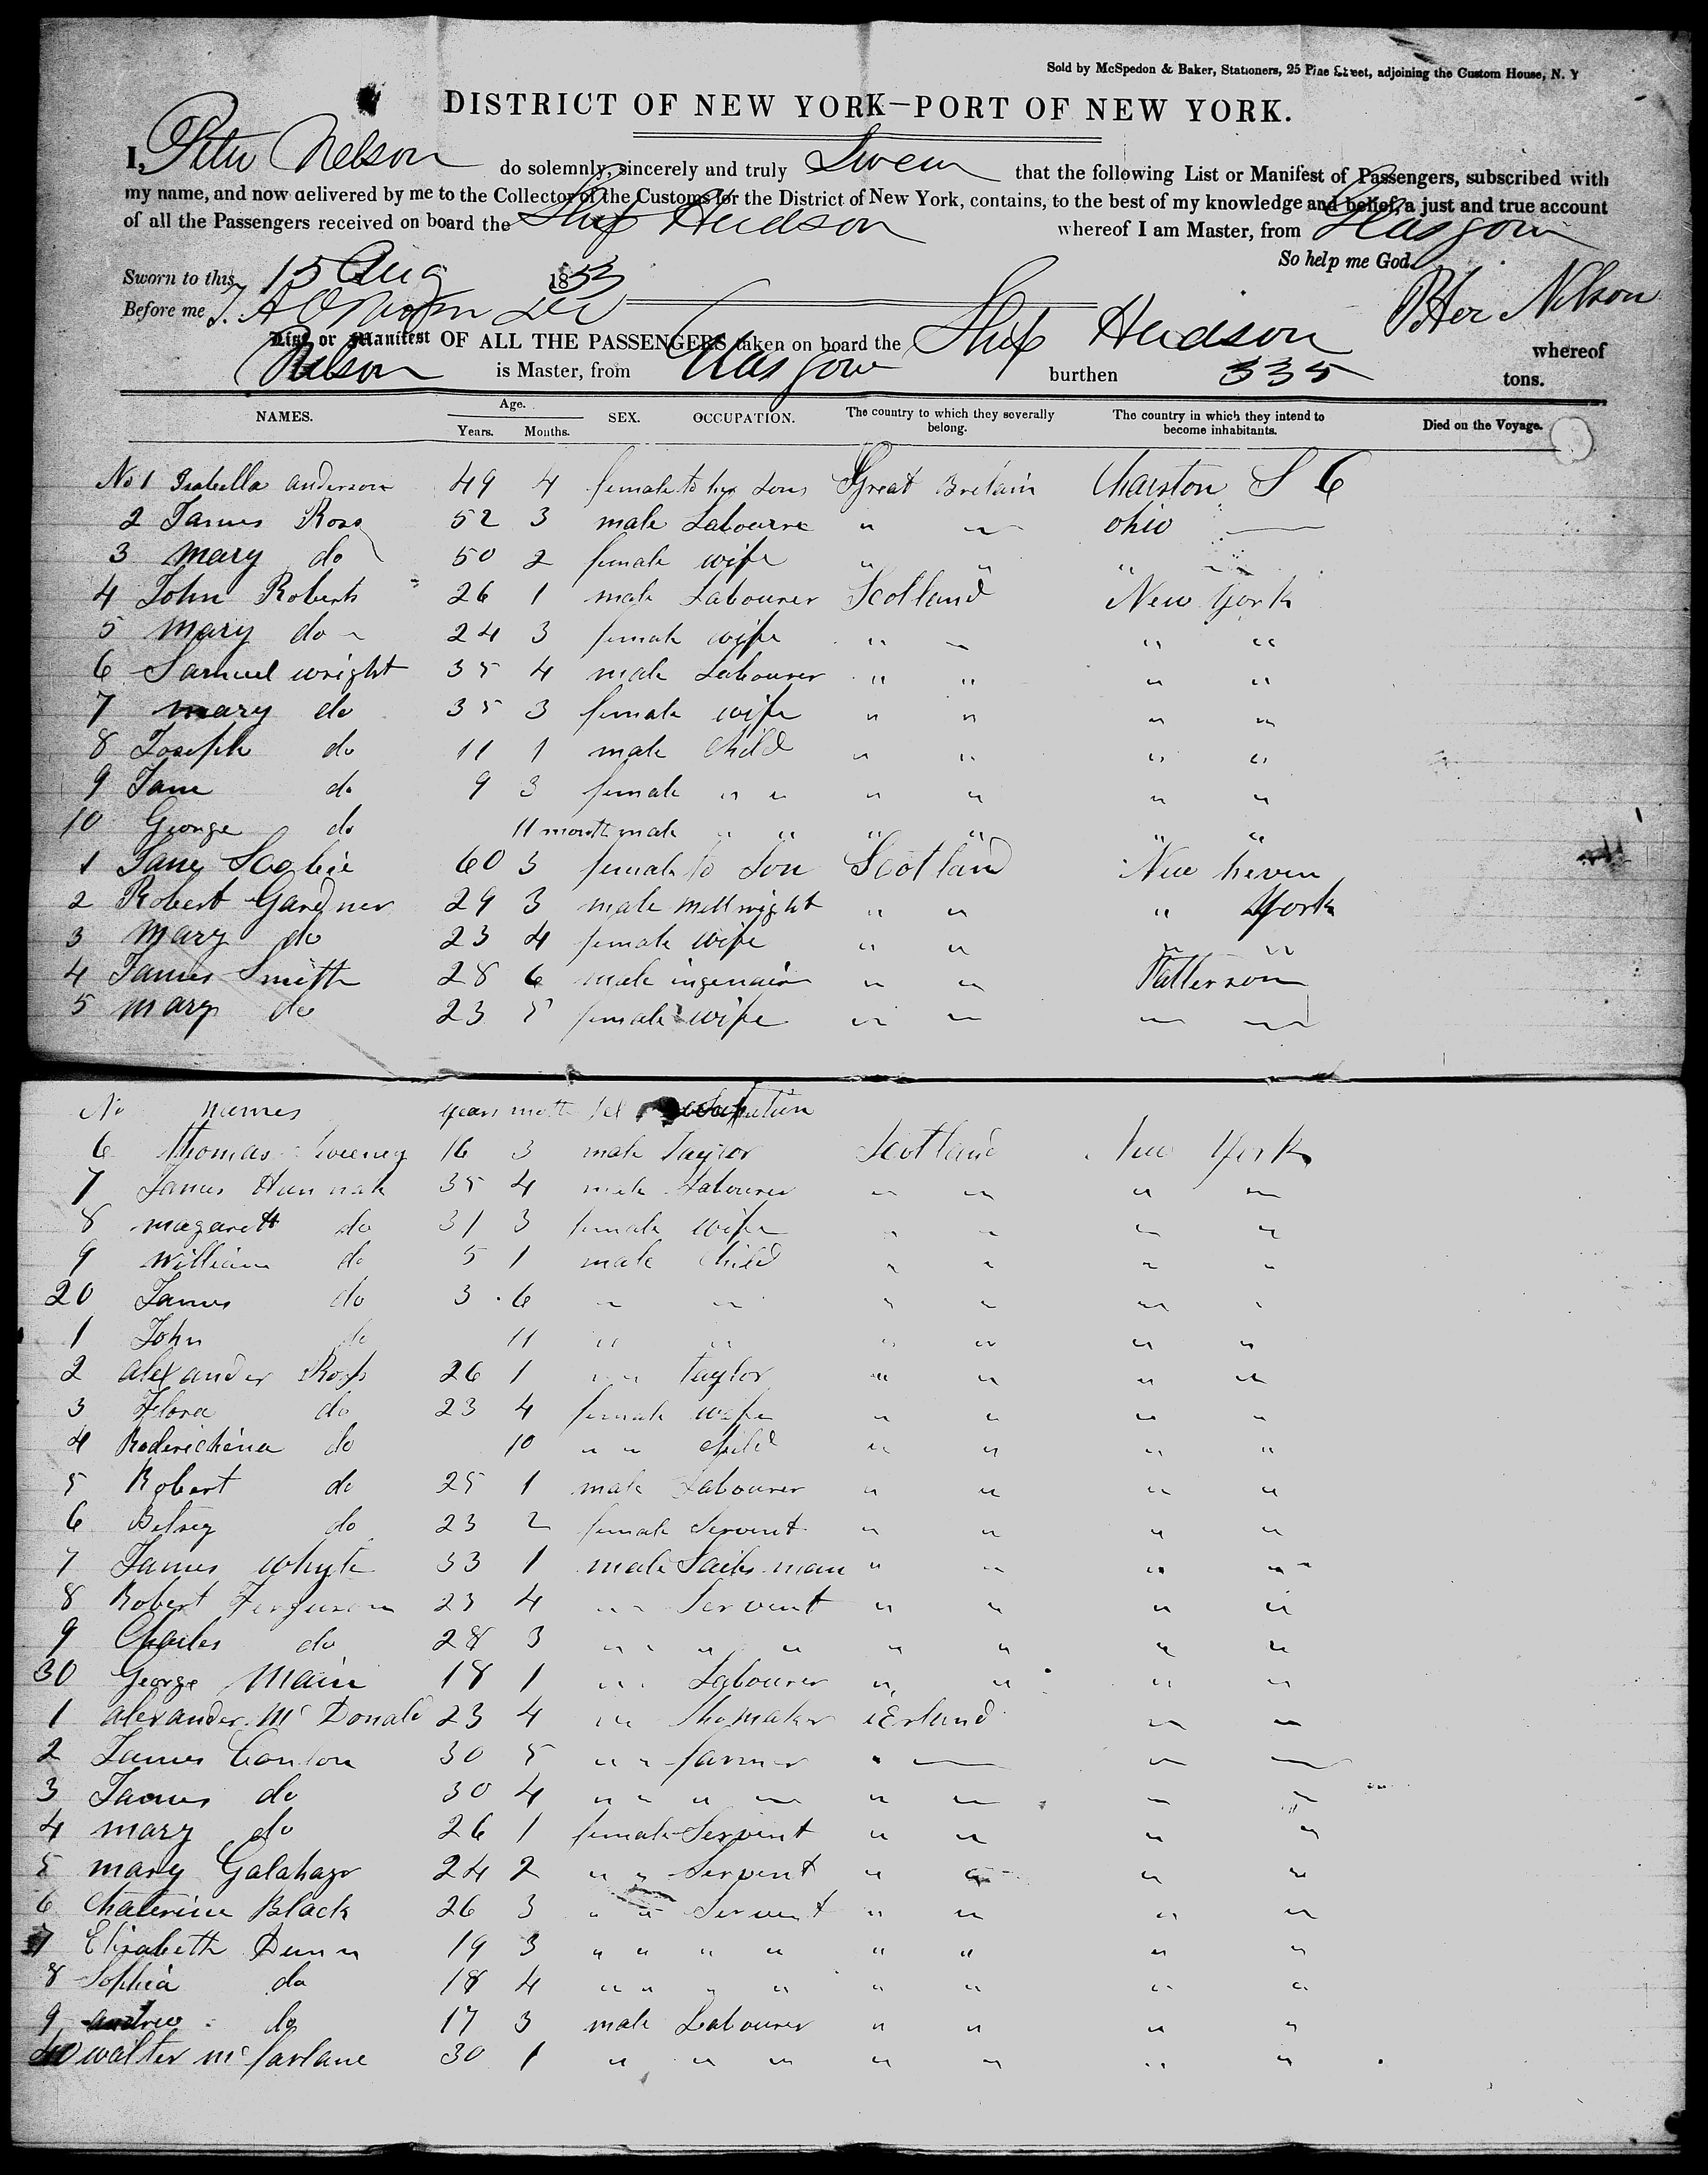 Sold by McSpedon & Baker, Stationers, 25 Pine Street, adjoining the Custom House, N. Y
DISTRICT OF NEW YORK—PORT OF NEW YORK.
I, Peter Nelson do solemnly, sincerely and truly Swear that the following List or Manifest of Passengers, subscribed with
my name, and now delivered by me to the Collector of the Customs for the District of New York, contains, to the best of my knowledge and belief, a just and true account
of all the Passengers received on board the Ship Hudson whereof I am Master, from Glasgow
So help me God.
Sworn to this 15 Aug 1853
Before me Peter Nelson
List or Manifest OF ALL THE PASSENGERS taken on board the Ship Hudson whereof
Nelson is Master, from Glasgow burthen 335 tons.
NAMES. Age. Years. Months. SEX. OCCUPATION. The country to which they severally belong. The country in which they intend to become inhabitants. Died on the Voyage.
No 1 Isabella anderson 49 4 female to her Sons Great Britain Charston S C
2 James Ross 52 3 male Labourre " " ohio
3 mary do 50 2 female wife " " " "
4 John Roberts 26 1 male Labourer Scotland New York
5 mary do 24 3 female wife " " " "
6 Samuel wright 35 4 male Labourer " " " "
7 mary do 35 3 female wife " " " "
8 Joseph do 11 1 male Child " " " "
9 Jane do 9 3 female " " " " " "
10 George do 11 month male " " " " " "
1 Jane Scobie 60 3 female to Son Scotland New heven
2 Robert Gardner 29 3 male mellwright " " " York
3 Mary do 23 4 female wife " " " "
4 James Smith 28 6 male ingenair " " Patterson
5 mary do 23 5 female wife " " " "
No names years month sex
6 Thomas Sweeney 16 3 male Taylor Scotland New York
7 James Hannah 35 4 male Labourer " " " "
8 magarett do 31 3 female wife " " " "
9 William do 5 1 male Child " " " "
20 James do 3 6 " " " " " "
1 John do 11 " " " " " "
2 alexander Ross 26 1 " " Taylor " " " "
3 Flora do 23 4 female wife " " " "
4 Roderichina do 10 " " Child " " " "
5 Robert do 25 1 male Labourer " " " "
6 Betsey do 23 2 female Servent " " " "
7 James whyte 33 1 male Sails man " " " "
8 Robert Ferguson 23 4 " " Servent " " " "
9 Charles do 28 3 " " " " " " " "
30 George Main 18 1 " " Labourer " " " "
1 alexander Mc Donald 23 4 " " Shomaker iErland " "
2 James Conlon 30 5 " " farmer " " "
3 James do 30 4 " " " " " " " "
4 mary do 26 1 female Servent " " " "
5 mary Galahagr 24 2 " " Servent " " " "
6 Chaterine Black 26 3 " " Servent " " " "
7 Elisabeth Dunn 19 3 " " " " " " " "
8 Sophia do 18 4 " " " " " " " "
9 andrew do 17 3 male Labourer " " " "
40 walter mc farlane 30 1 " " " " " " "